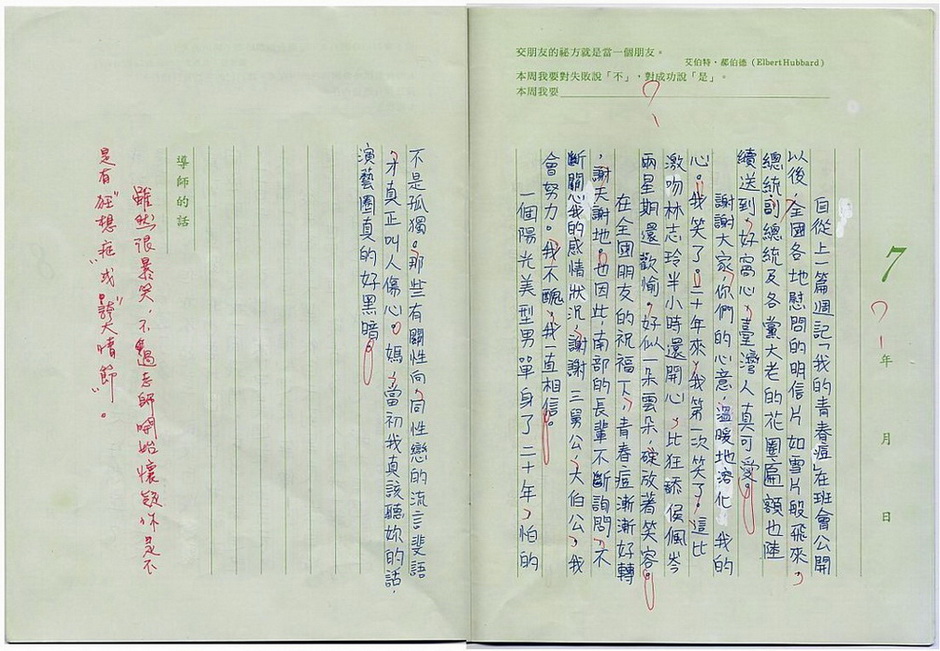 交朋友的祕方就是當一個朋友。
艾伯特・郝伯德（Elbert Hubbard）
本周我要對失敗說「不」，對成功說「是」。
本周我要
7
年 月 日
自從上一篇週記「我的青春痘」在班會公開
以後，全國各地慰問的明信片如雪片般飛來，
總統、副總統及各黨大老的花圈、匾額也陸
續送到，好窩心，臺灣人真可愛。
謝謝大家，你們的心意，溫暖地溶化我的
心。我笑了。二十年來，我第一次笑了，這比
激吻林志玲半小時還開心，比狂舔侯佩岑
兩星期還歡愉，好似一朵雲朵，碇放著笑容。
在全國朋友的祝福下，青春痘漸漸好轉
，謝天謝地，也因此，南部的長輩不斷詢問，不
斷關心我的感情狀況，謝謝三舅公、大伯公，我
會努力。我不醜，我一直相信。
一個陽光美型男單身了二十年，怕的
不是孤獨。那些有關性向，同性戀的流言斐語
，才真正叫人傷心。媽，當初我真該聽妳的話，
演藝圈真的好黑暗。
導師的話
雖然很暴笑，不過老師開始懷疑你是不
是有"狂想症"或"誇大情節"。